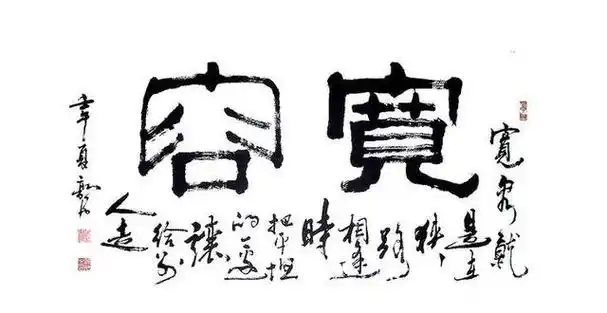 寬容
寬容就
是在
狹
路
相逢
時
把平坦
的一邊
讓
給別
人走
夏